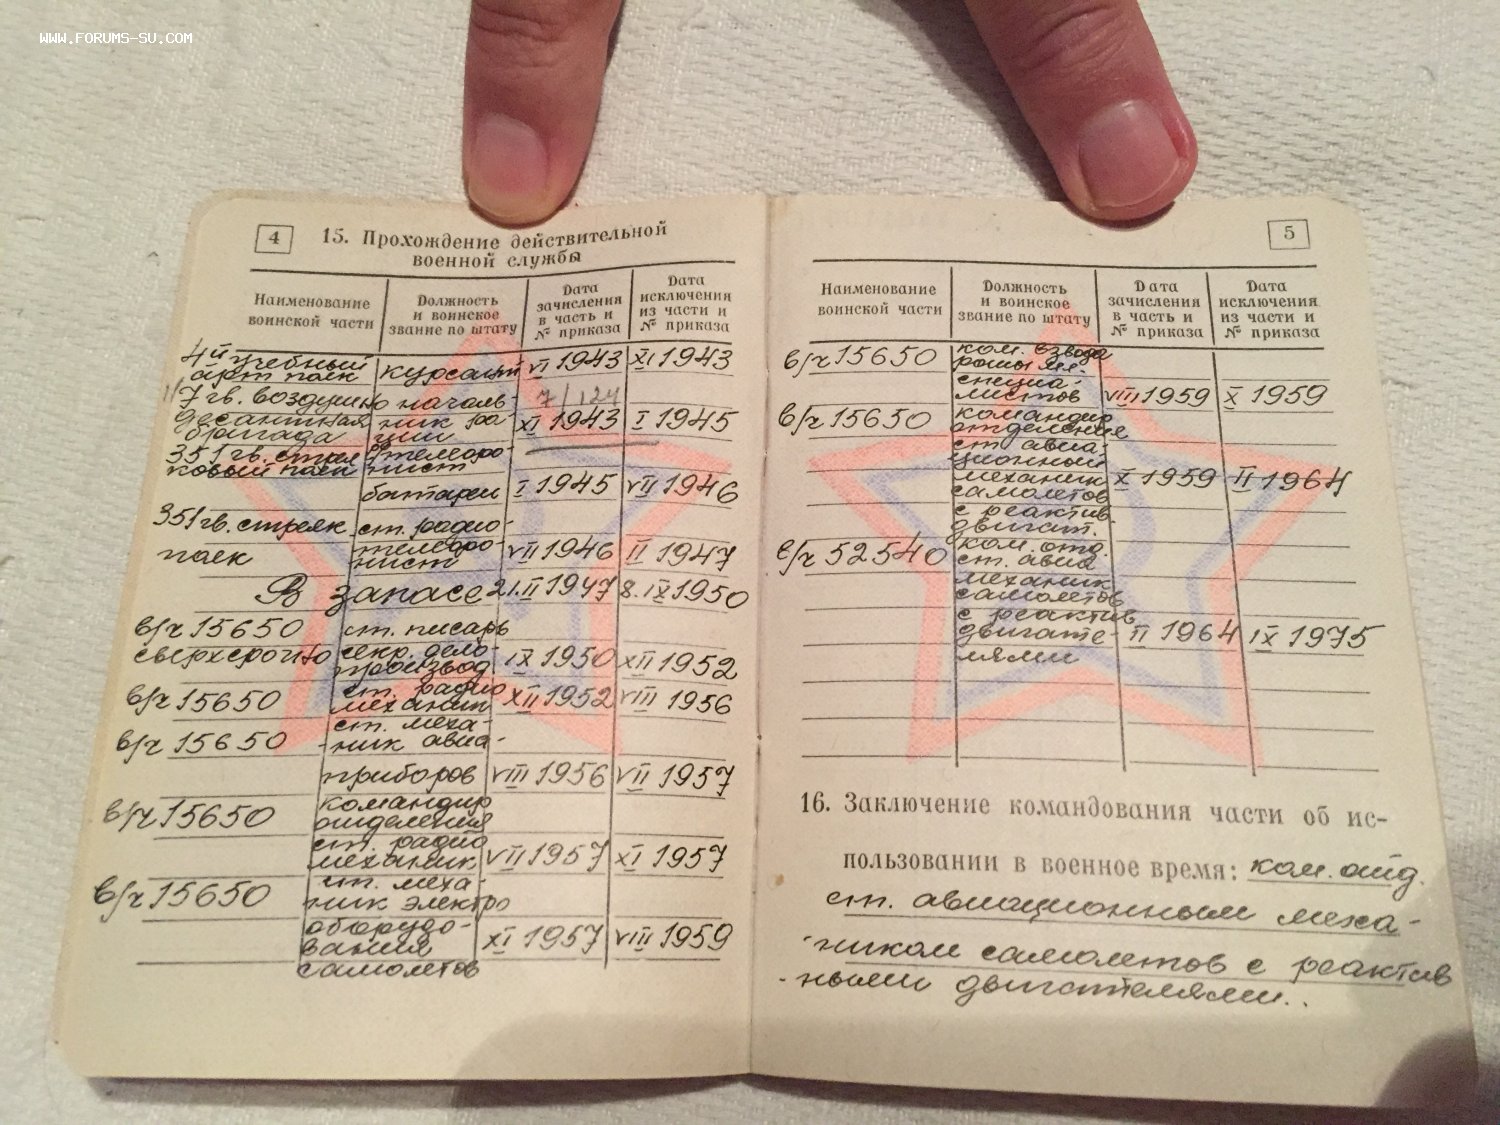 WWW.FORUMS-SU.COM
4
15. Прохождение действительной
военной службы
Наименование
воинской части
Должность
и воинское
звание по штату
Дата
зачисления
в часть и
№ приказа
Дата
исключения
из части и
№ приказа
4й учебный
арт полк
курсант
VI 1943
XI 1943
7 гв. воздушно
десантная
бригада
началь-
ник ра
ции
7/124
XI 1943
I 1945
351 гв. стрел
ковый полк
телефо-
нист
батареи
I 1945
VII 1946
351 гв. стрелк.
полк
ст. радио-
телефо-
нист
VII 1946
II 1947
В запасе
21.II 1947
8.IX 1950
в/ч 15650
сверхсрочно
ст. писарь
секр. дело-
производ
IX 1950
XII 1952
в/ч 15650
ст. радио
механик
XII 1952
VIII 1956
в/ч 15650
ст. меха-
-ник авиа-
приборов
VIII 1956
VII 1957
в/ч 15650
командир
отделения
ст. радио
механик
VII 1957
XI 1957
в/ч 15650
ст. меха-
ник электро
оборудо-
вания
самолетов
XI 1957
VIII 1959
5
Наименование
воинской части
Должность
и воинское
звание по штату
Дата
зачисления
в часть и
№ приказа
Дата
исключения
из части и
№ приказа
в/ч 15650
ком. взвода
роты мл-
специа-
листов
VIII 1959
X 1959
в/ч 15650
командир
отделения
ст. авиа-
ционный
механик
самолетов
с реактив-
двигат.
X 1959
II 1964
в/ч 52540
ком. отд.
ст. авиа
механик
самолетов
с реактив
двигате-
лями
II 1964
IX 1975
16. Заключение командования части об ис-
пользовании в военное время: ком. отд.
ст. авиационным меха-
-ником самолетов с реактив
-ными двигателями..